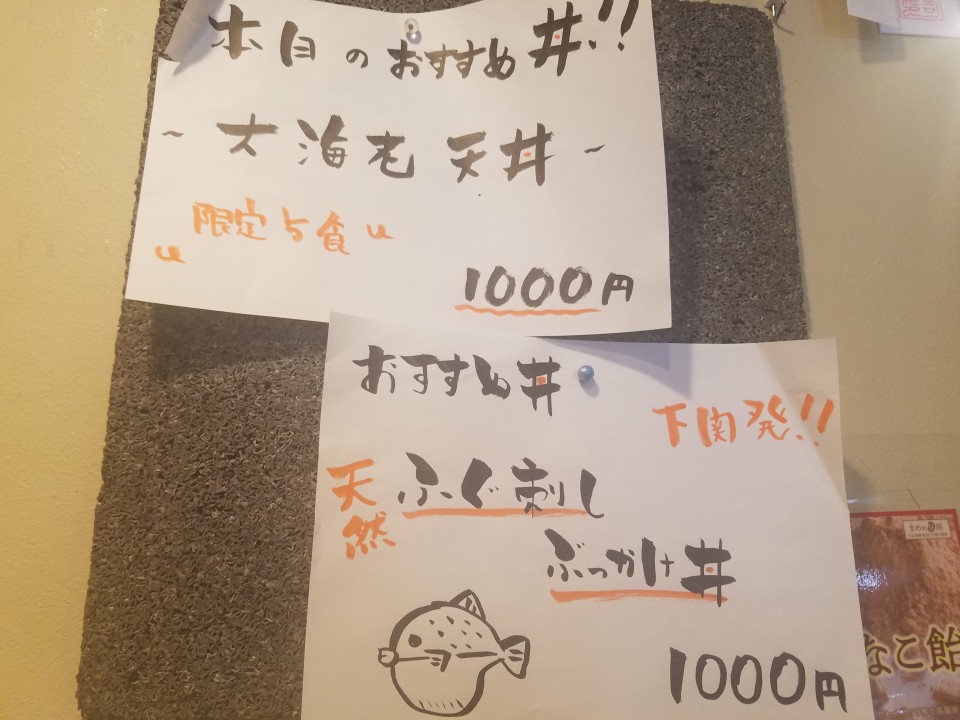 本日のおすすめ丼!!
～大海老天丼～
限定5食
1000円
おすすめ丼
下関発!!
天然
ふぐ刺し
ぶっかけ丼
1000円
なこ飴